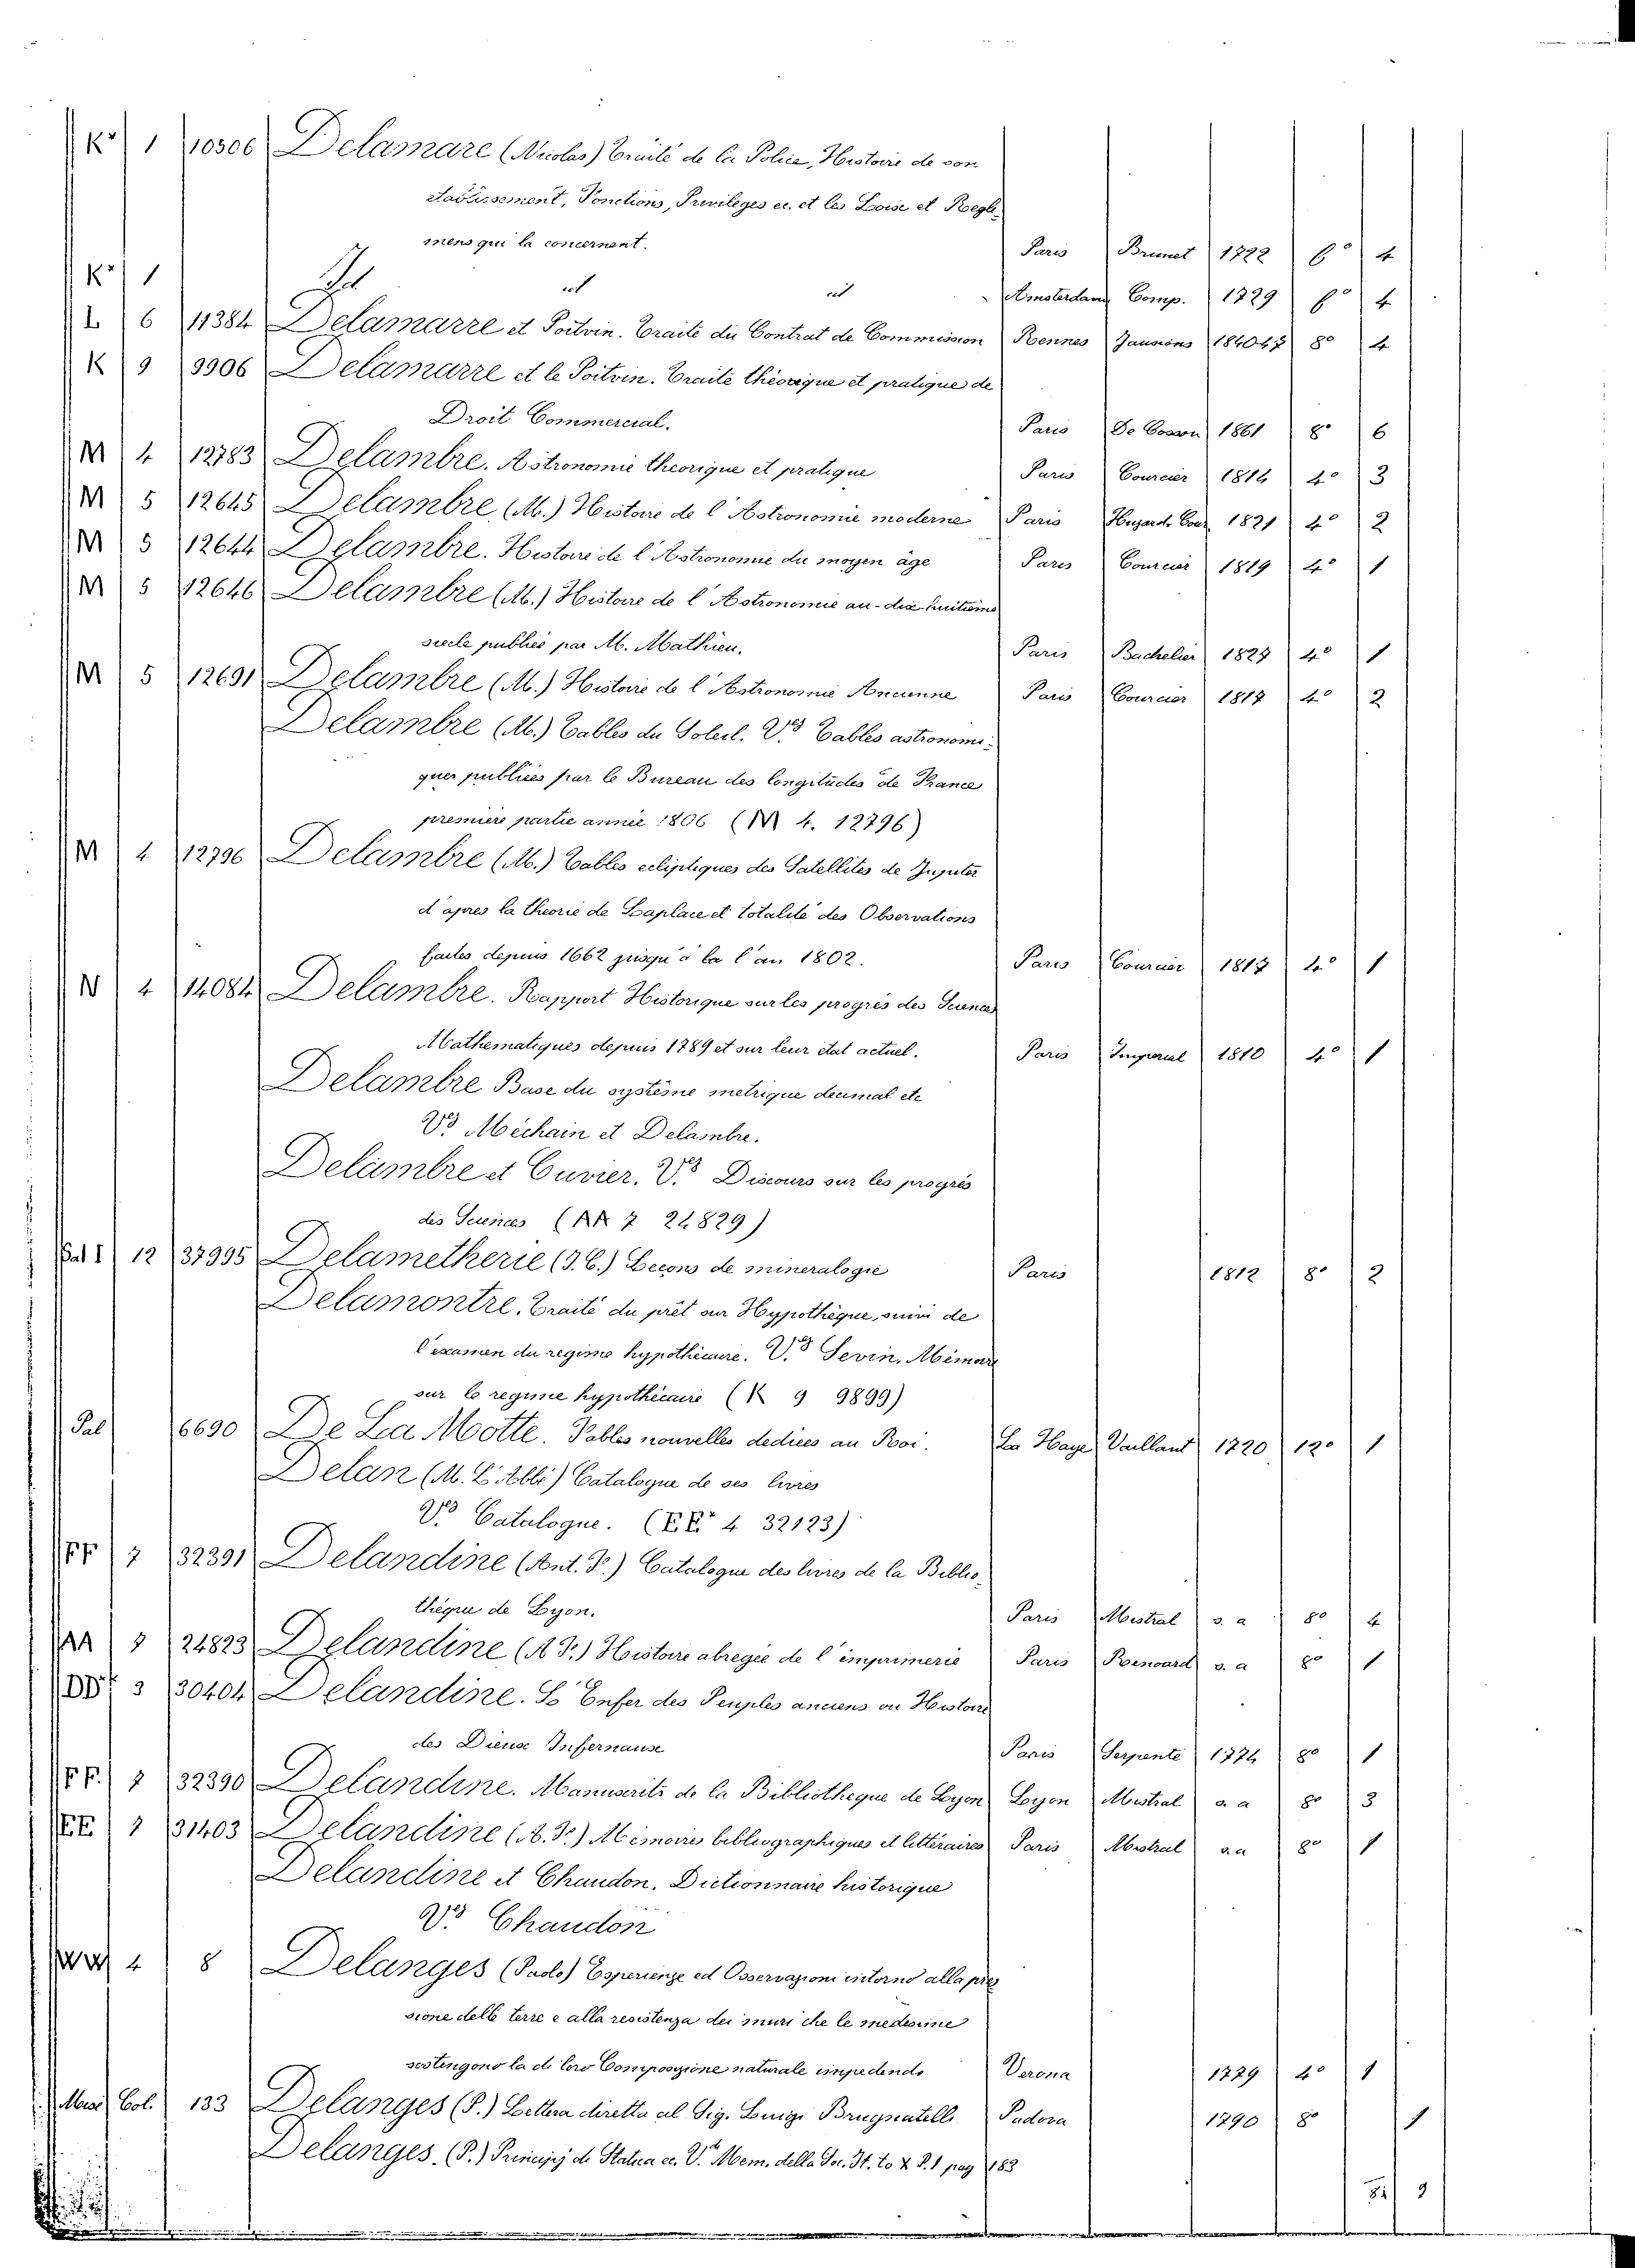 K 1 10306 Delamare (Nicolas) Traité de la Police, Histoire de son
etablissement, Fonctions, Privileges ec. et les Loix et Regle-
mens qui la concernent. Paris Brunet 1722 f.° 4
K 1 Id id id Amsterdam Comp. 1729 f.° 4
L 6 11384 Delamarre et Poitvin. Traité du Contrat de Commission Rennes Jausions 1840 8° 4
K 9 9906 Delamarre et le Poitvin. Traité théorique et pratique de
Droit Commercial. Paris De Cosson 1861 8° 6
M 4 12783 Delambre. Astronomie theorique et pratique Paris Courcier 1814 4° 3
M 5 12645 Delambre (M.) Histoire de l'Astronomie moderne Paris Huzard. Cour 1821 4° 2
M 5 12644 Delambre. Histoire de l'Astronomie du moyen âge Paris Courcier 1819 4° 1
M 5 12646 Delambre (M.) Histoire de l'Astronomie au-dix-huitieme
siecle publiée par M. Mathieu. Paris Bachelier 1827 4° 1
M 5 12691 Delambre (M.) Histoire de l'Astronomie Ancienne Paris Courcier 1817 4° 2
Delambre (M.) Tables du Soleil. V.es Tables astronomi-
ques publiées par le Bureau des longitudes de France
première partie année 1806 (M 4. 12796)
M 4 12796 Delambre (M.) Tables ecliptiques des Satellites de Jupiter
d'apres la theorie de Laplace et totalité des Observations
faites depuis 1662 jusqu'à la l'an 1802. Paris Courcier 1817 4° 1
N 4 14084 Delambre. Rapport Historique sur les progrès des Sciences
Mathematiques depuis 1789 et sur leur état actuel. Paris Imperial 1810 4° 1
Delambre Base du système metrique decimal etc
V.es Méchain et Delambre.
Delambre et Cuvier. V.es Discours sur les progrès
des Sciences (AA 7 24829)
Sal I 12 37995 Delametherie (J. C.) Leçons de mineralogie Paris 1812 8° 2
Delamontre. Traité du prêt sur Hypothèque, suivi de
l'examen du regime hypothécaire. V.es Sevin, Mémoire
sur le regime hypothécaire (K 9 9899)
Sal 6690 De La Motte. Fables nouvelles dediées au Roi. La Haye Vaillant 1720 12° 1
Delan (M. L'Abbé) Catalogue de ses livres
V.es Catalogue. (EE 4 32123)
FF 7 32391 Delandine (Ant. F.) Catalogue des livres de la Biblio-
thèque de Lyon. Paris Mistral s. a 8° 4
AA 7 24823 Delandine (A F.) Histoire abregée de l'imprimerie Paris Renouard s. a 8° 1
DD 3 30404 Delandine. L'Enfer des Peuples anciens ou Histoire
des Dieux Infernaux Paris Serpente 1774 8° 1
FF. 7 32390 Delandine. Manuscrits de la Bibliotheque de Lyon Lyon Mistral s. a 8° 3
EE 7 31403 Delandine (A. F.) Mémoires bibliographiques et littéraires Paris Mistral s. a 8° 1
Delandine et Chaudon. Dictionnaire historique
V.es Chaudon
4 8 Delanges (Paolo) Esperienze ed Osservazioni intorno alla pres
sione delle terre e alla resistenza dei muri che le medesime
sostengono la di loro Composizione naturale impedendo Verona 1779 4° 1
Misc Col. 133 Delanges (P.) Lettera diretta al Sig. Luigi Brugnatelli Padova 1790 8° 1
Delanges. (P.) Principj di Statica ec. V. Mem. della Soc. It. to X P. 1 pag 183